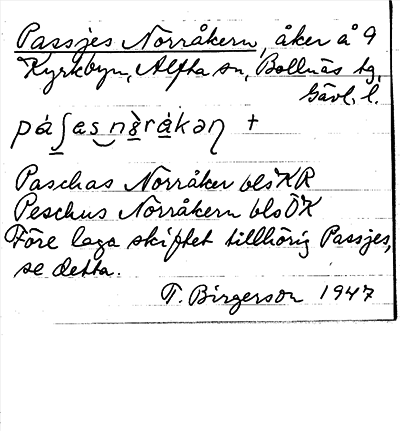 Passjes Norråkern, åker å 9
Kyrkbyn, Alfta sn, Bollnäs tg,
Gävl. l.
pás̱ʃas_nṟåråkəɳ +
Paschas Norråker bls KR
Peschus Norråkern bls ÖK
Före laga skiftet tillhörig Passjes,
se detta.
T. Birgerson 1947